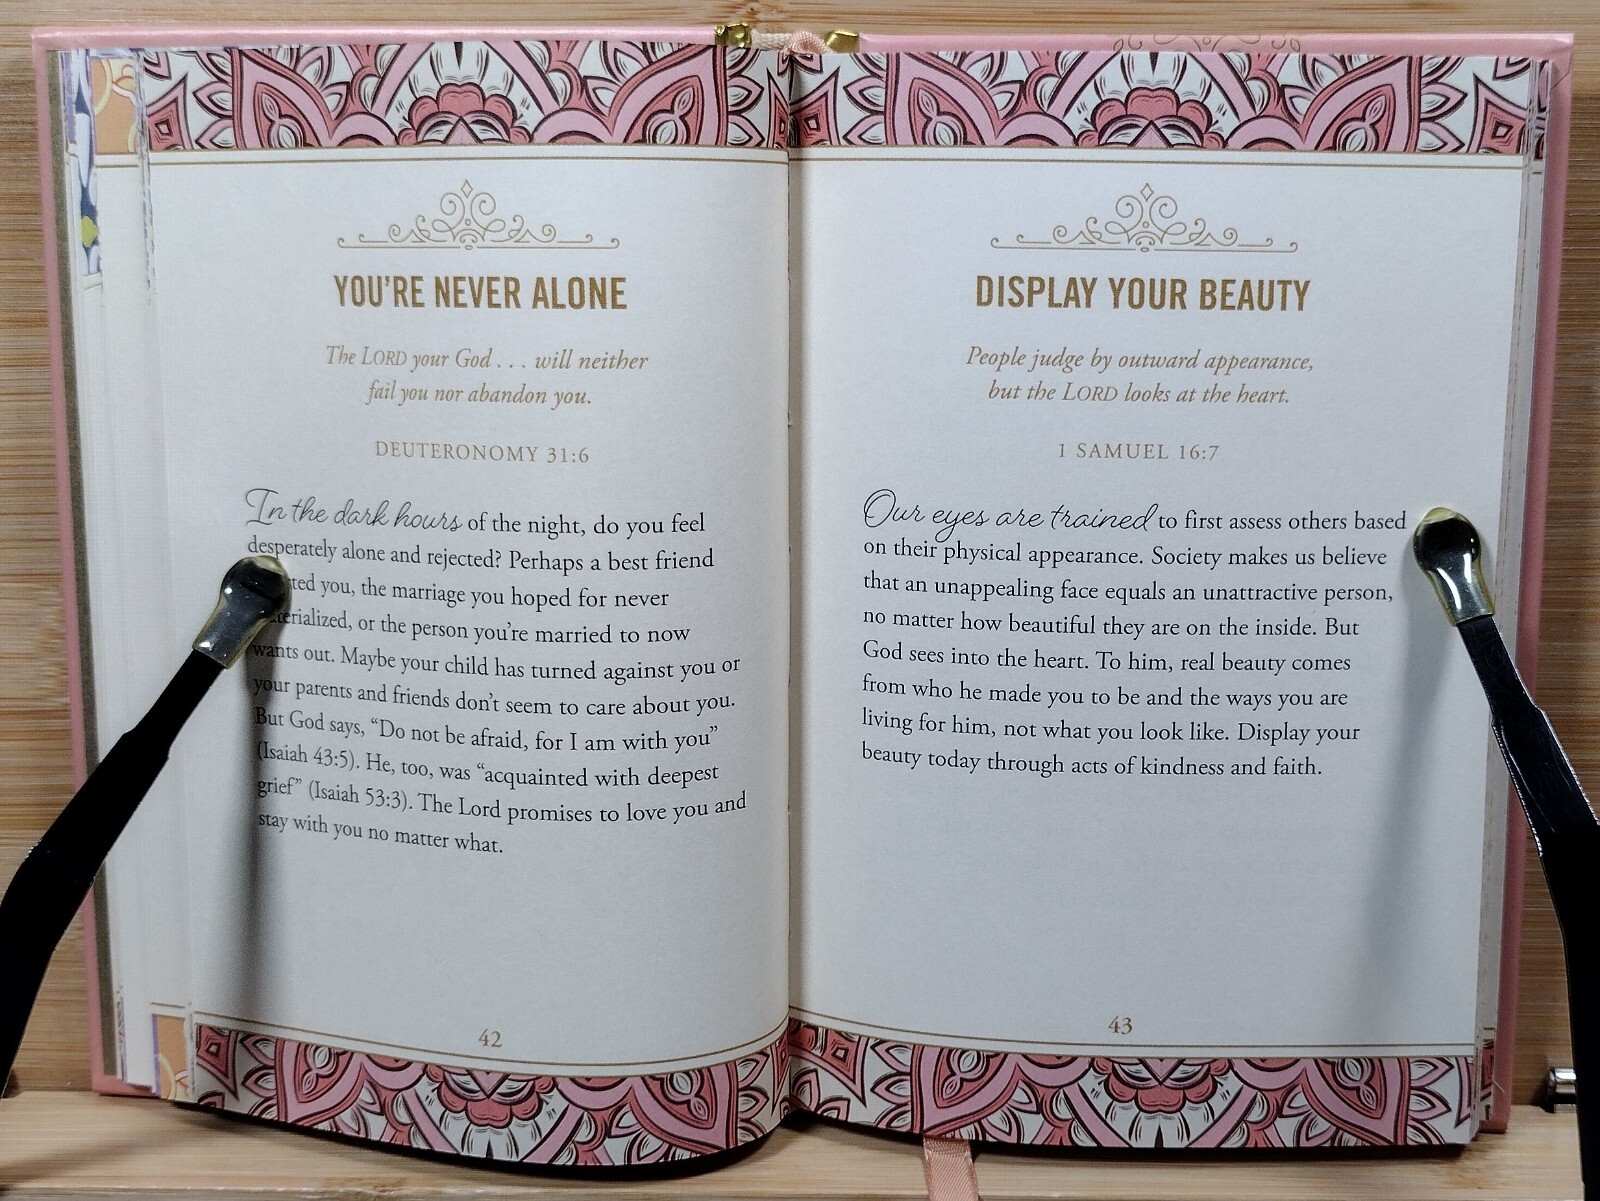 YOU'RE NEVER ALONE
The LORD your God . . . will neither
fail you nor abandon you.
DEUTERONOMY 31:6
In the dark hours of the night, do you feel
desperately alone and rejected? Perhaps a best friend
you, the marriage you hoped for never
or the person you're married to now
wants out. Maybe your child has turned against you or
your parents and friends don't seem to care about you.
But God says, “Do not be afraid, for I am with you”
(Isaiah 43:5). He, too, was “acquainted with deepest
grief” (Isaiah 53:3). The Lord promises to love you and
stay with you no matter what.
42
DISPLAY YOUR BEAUTY
People judge by outward appearance,
but the LORD looks at the heart.
1 SAMUEL 16:7
Our eyes are trained to first assess others based
on their physical appearance. Society makes us believe
that an unappealing face equals an unattractive person,
no matter how beautiful they are on the inside. But
God sees into the heart. To him, real beauty comes
from who he made you to be and the ways you are
living for him, not what you look like. Display your
beauty today through acts of kindness and faith.
43